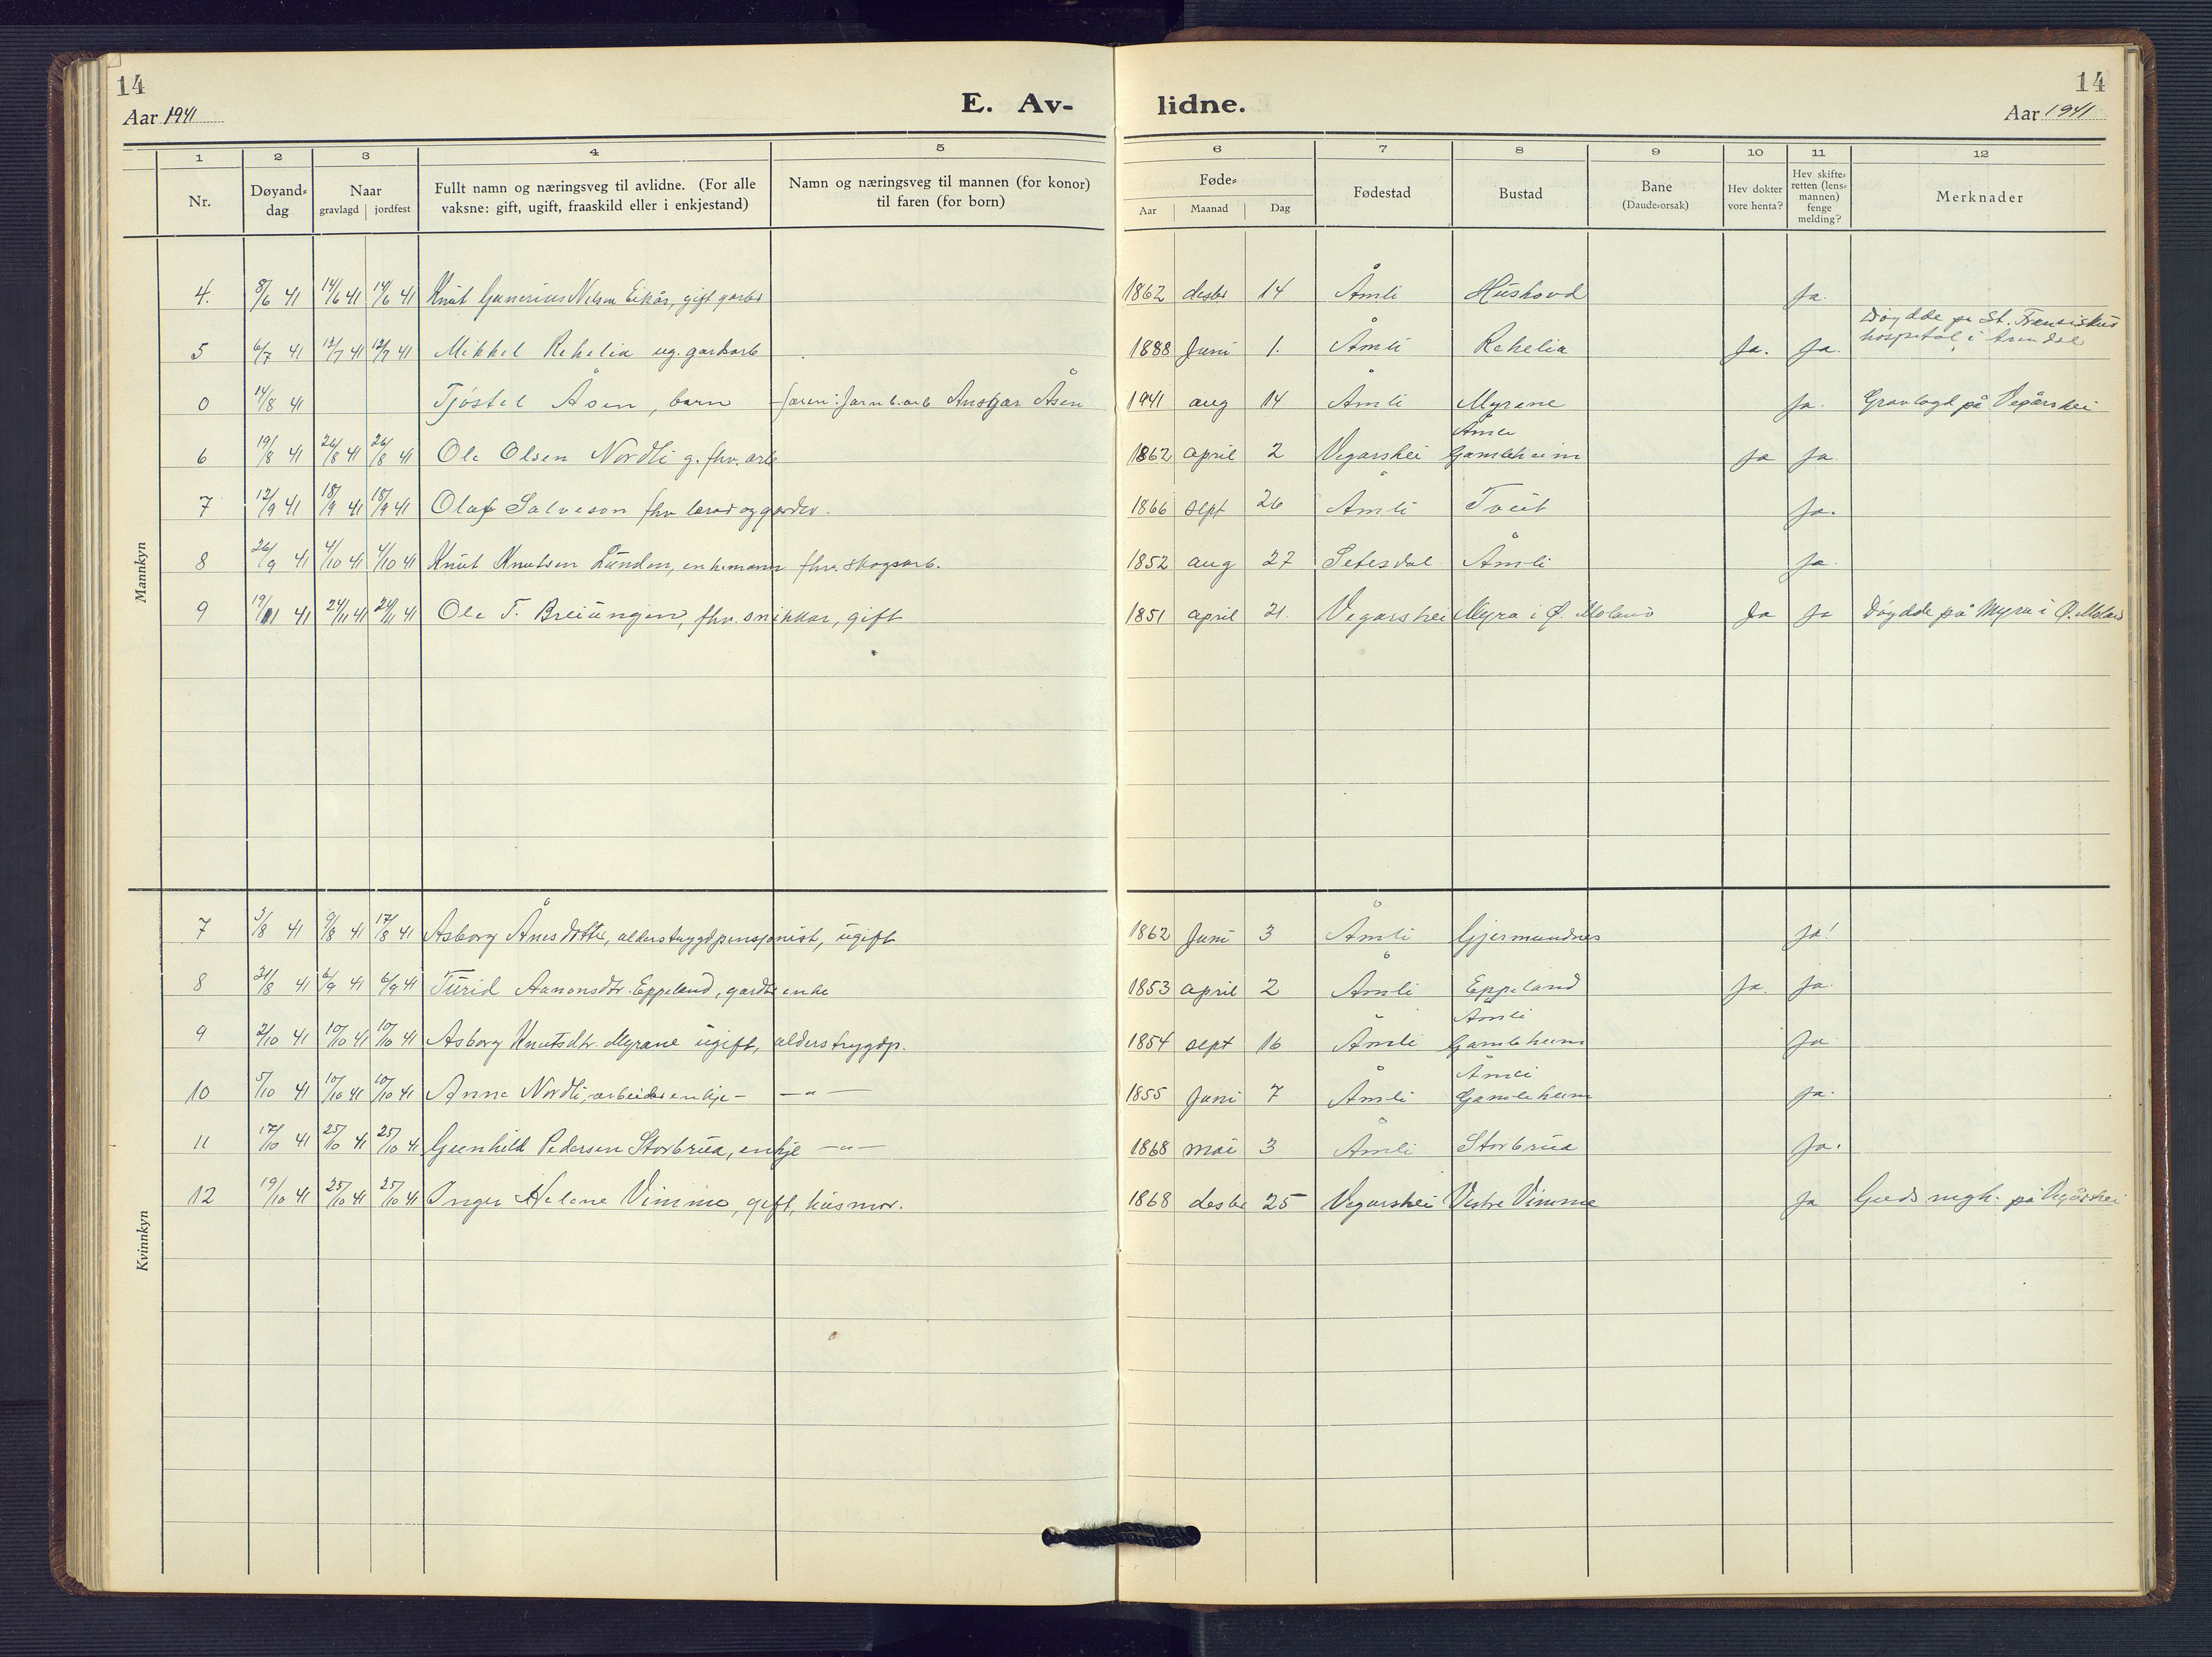 14
Aar 1941
E. Av-
lidne.
14
Aar 1941
1 2 3 4 5 6 7 8 9 10 11 12
Nr.
Døyand-
dag
Naar
gravlagd jordfest
Fullt namn og næringsveg til avlidne. (For alle
vaksne: gift, ugift, fraaskild eller i enkjestand)
Namn og næringsveg til mannen (for konor)
til faren (for born)
Føde-
Aar Maanad Dag
Fødestad
Bustad
Bane
(Daude-orsak)
Hev dokter
vore henta?
Hev skifte-
retten (lens-
mannen)
fenge
melding?
Merknader
Mannkyn
4. 8/6 41 14/6 41 14/6 41 Knut Gunerius Nelsen Eikås, gift 1862 desbr 14 Åmli Hushovd Ja.
5 6/7 41 12/7 41 12/7 41 Mikkel Rehelia ug. gardsarb 1888 Juni 1. Åmli Rehelia Ja. Ja. Døydde på St. Fransiskus
hospital i Arendal
0 14/8 41 Tjøstel Åsen, barn faren: Jarnb.arb Ansgar Åsen 1941 aug 14 Åmli Myrane Ja. Gravlagd på Vegårshei
6 19/8 41 26/8 41 26/8 41 Ole Olsen Nordli g. fhv. arb 1862 april 2 Vegarshei Åmli
Gamleheim Ja Ja
7 12/9 41 18/9 41 18/9 41 Olaf Salveson fhv lærar og gardbr. 1866 sept 26 Åmli Tveit Ja.
8 26/9 41 4/10 41 4/10 41 Knut Knutsen Lunden, enkemann fhv. skogsarb. 1852 aug 27 Setesdal Åmli Ja.
9 19/11 41 24/11 41 24/11 41 Ole T. Breiungen, fhv. snikkar, gift 1851 april 21. Vegarshei Myra i Ø. Moland Ja Ja Døydde på Myra i Ø. Moland
Kvinnkyn
7 3/8 41 9/8 41 17/8 41 Asborg Ånesdotter, alderstrygdpensjonist, ugift 1862 Juni 3 Åmli Gjermundnes Ja!
8 31/8 41 6/9 41 6/9 41 Turid Aanonsdtr. Eppeland, gardbr enke 1853 april 2 Åmli Eppeland Ja. Ja.
9 2/10 41 10/10 41 10/10 41 Asborg Knutsdtr. Myrane ugift, alderstrygdp. 1854 sept 16 Åmli Åmli
Gamleheim Ja
10 5/10 41 10/10 41 10/10 41 Anne Nordli, arbeidarenkje - —"— 1855 Juni 7 Åmli Åmli
Gamleheim Ja.
11 17/10 41 25/10 41 25/10 41 Gunhild Pedersen Storbrua, enkje —"— 1868 mai 3 Åmli Storbrua Ja.
12 19/10 41 25/10 41 25/10 41 Inger Helene Vimme, gift, husmor. 1868 desbr 25 Vegarshei Vestre Vimme Ja på Vegårshei